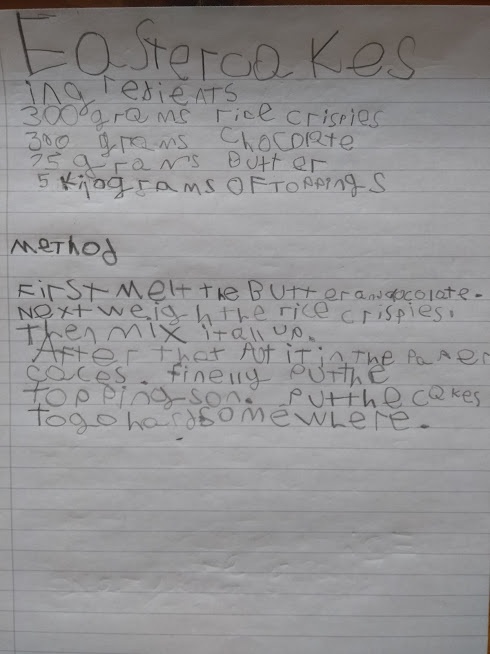 Eastercakes
ingredients
300grams rice crispies
300 grams chocolate
75 grams Butter
5 kilograms OF TOPPINGS
method
First melt the Butter and chcolate.
Next weigh the rice crispies.
Then mix it all up.
After that put it in the paper
caces. finelly put the
toppings on. put the cakes
to go hard somewhere.